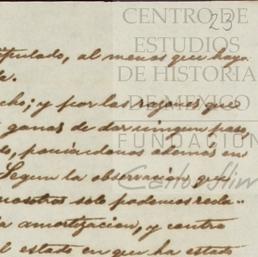 CENTRO DE
23
ESTUDIOS
DE HISTORIA
DE MEXICO
FUNDACIÓN
Carlos Slim
ipulado, al menos que haya
cho; y por las razones que
ganas de dar ningun paso,
poniendonos ademas en
Segun la observacion que
nosotros solo podemos recla-
ia amortizacion, y contra
el estado en que ha estado